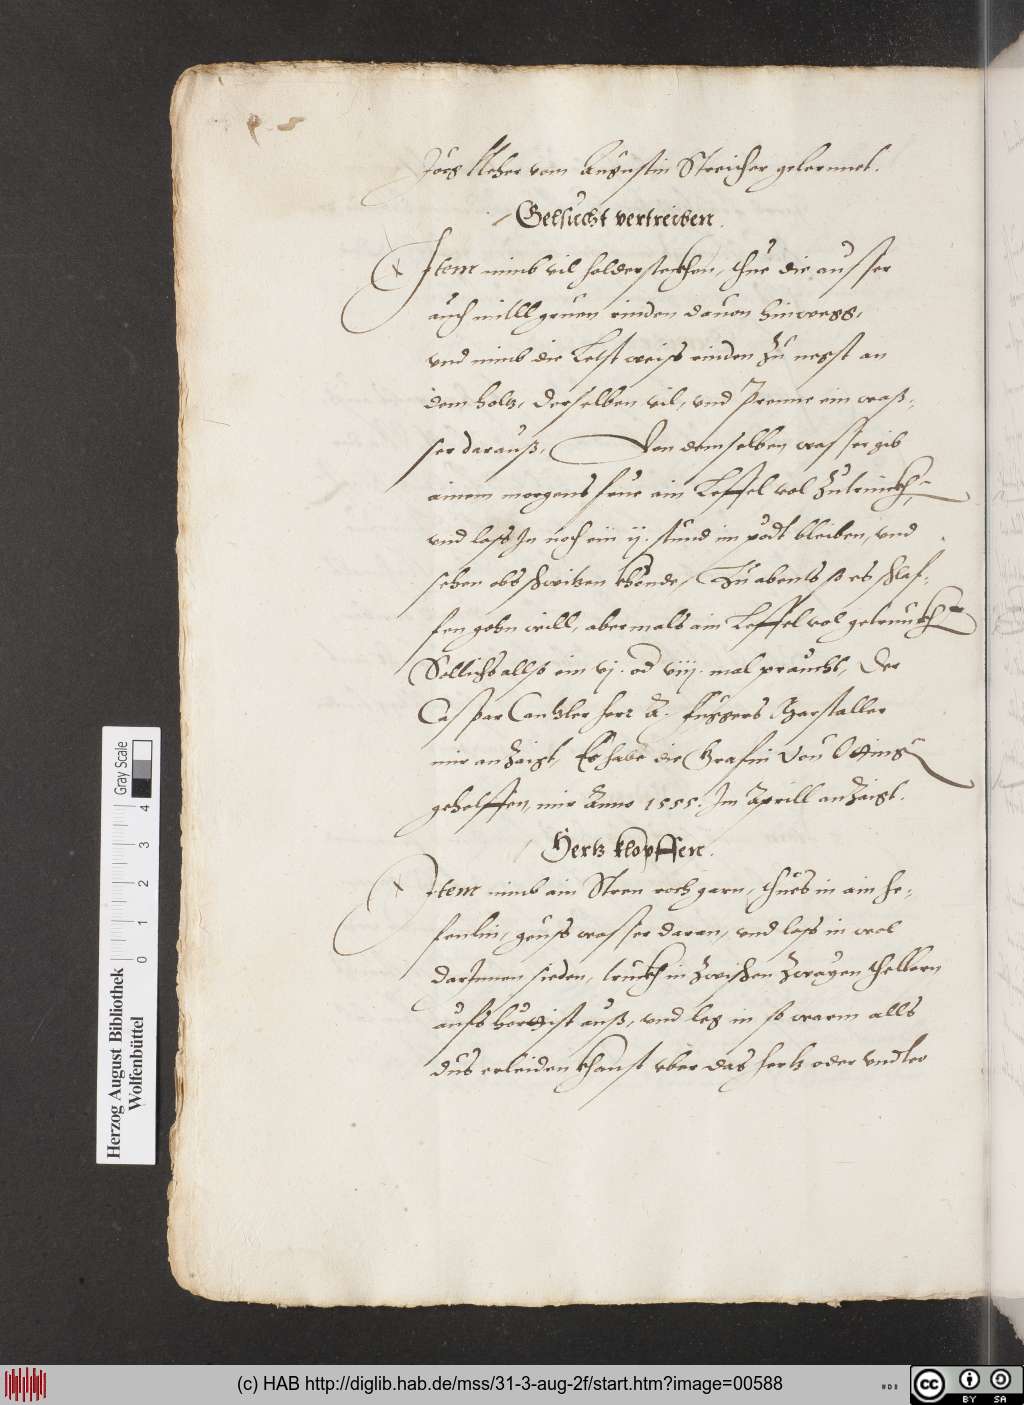 Jörg Kleher vom Augustin Streicher gelernnet.
Gelsucht vertreiben.
Item nimb vil holdersteckhen, thue die ausser
auch nilll gruen rinden dauon hinwegg,
vnd nimb die Letst weiss rinden zu negst an
dem holtz, derselben vil, vnd prenne ein waß-
ser darauß, Von demselben wasser gib
ainem morgens frue ain Leffel vol zutrinckhen
vnd lass In noch ein ij. stund im pödt bleiben, vnd
sehen obs schwitzen khönde, Zu abents so es schlaf-
fen gehn will, abermals ain Leffel vol getrunckhen
Sollichs allso ein vj. od viij. mal praucht, Der
Caspar Cantzler herr A. Fuggers Marstaller
mir anzaigt, Es habe die Grafin von Otting
geholffen, mir Anno 1555. Im Aprill anzaigt.
Hertz klopffen.
Item nimb ain Stren roch garn, thues in ain he-
fenlin, geuss wasser daran, vnd lass in wol
darInnen sieden, truckh in zwischen zwayen thellern
aufs hörtist auß, vnd leg in so warm alls
dus erleiden khanst vber das hertz oder vndter
Herzog August Bibliothek
Wolfenbüttel
0 1 2 3 4
Gray Scale
(c) HAB http://diglib.hab.de/mss/31-3-aug-2f/start.htm?image=00588
cc BY SA